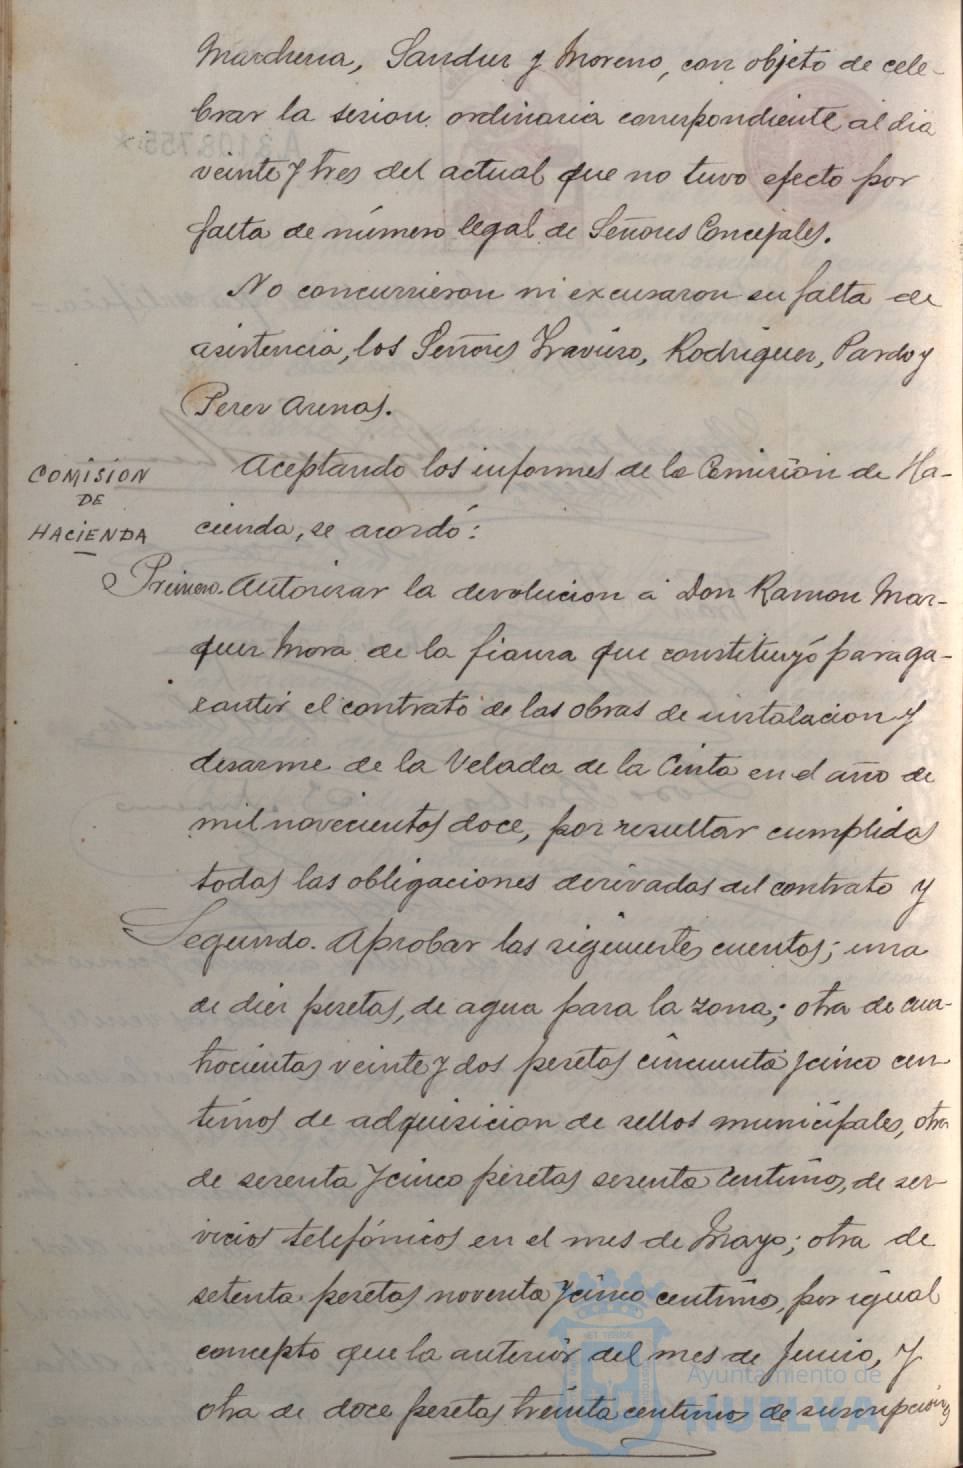 Marchena, Sandur y Moreno, con objeto de cele-
brar la sesion ordinaria correspondiente al dia
veinte y tres del actual que no tuvo efecto por
falta de número legal de Señores Concejales.
No concurrieron ni excusaron su falta de
asistencia, los Señores Travieso, Rodriguez, Pardo y
Perez Arenas.
COMISION
DE
HACIENDA
Aceptando los informes de la Comisión de Ha-
cienda, se acordó:
Primero. Autorizar la devolucion á Don Ramon Mar-
quez Mora de la fianza que constituyó para ga-
rantir el contrato de las obras de instalacion y
desarme de la Velada de la Cinta en el año de
mil novecientos doce, por resultar cumplidas
todas las obligaciones derivadas del contrato y
Segundo. Aprobar las siguientes cuentas; una
de diez pesetas, de agua para la zona; otra de cua-
trocientas veinte y dos pesetas cincuenta y cinco cen-
timos de adquisicion de sellos municipales, otra
de sesenta y cinco pesetas sesenta centimos, de ser-
vicios telefónicos en el mes de Mayo; otra de
setenta pesetas noventa y cinco centimos, por igual
concepto que la anterior del mes de Junio, y
otra de doce pesetas treinta centimos de suscripción
Ayuntamiento de
HUELVA